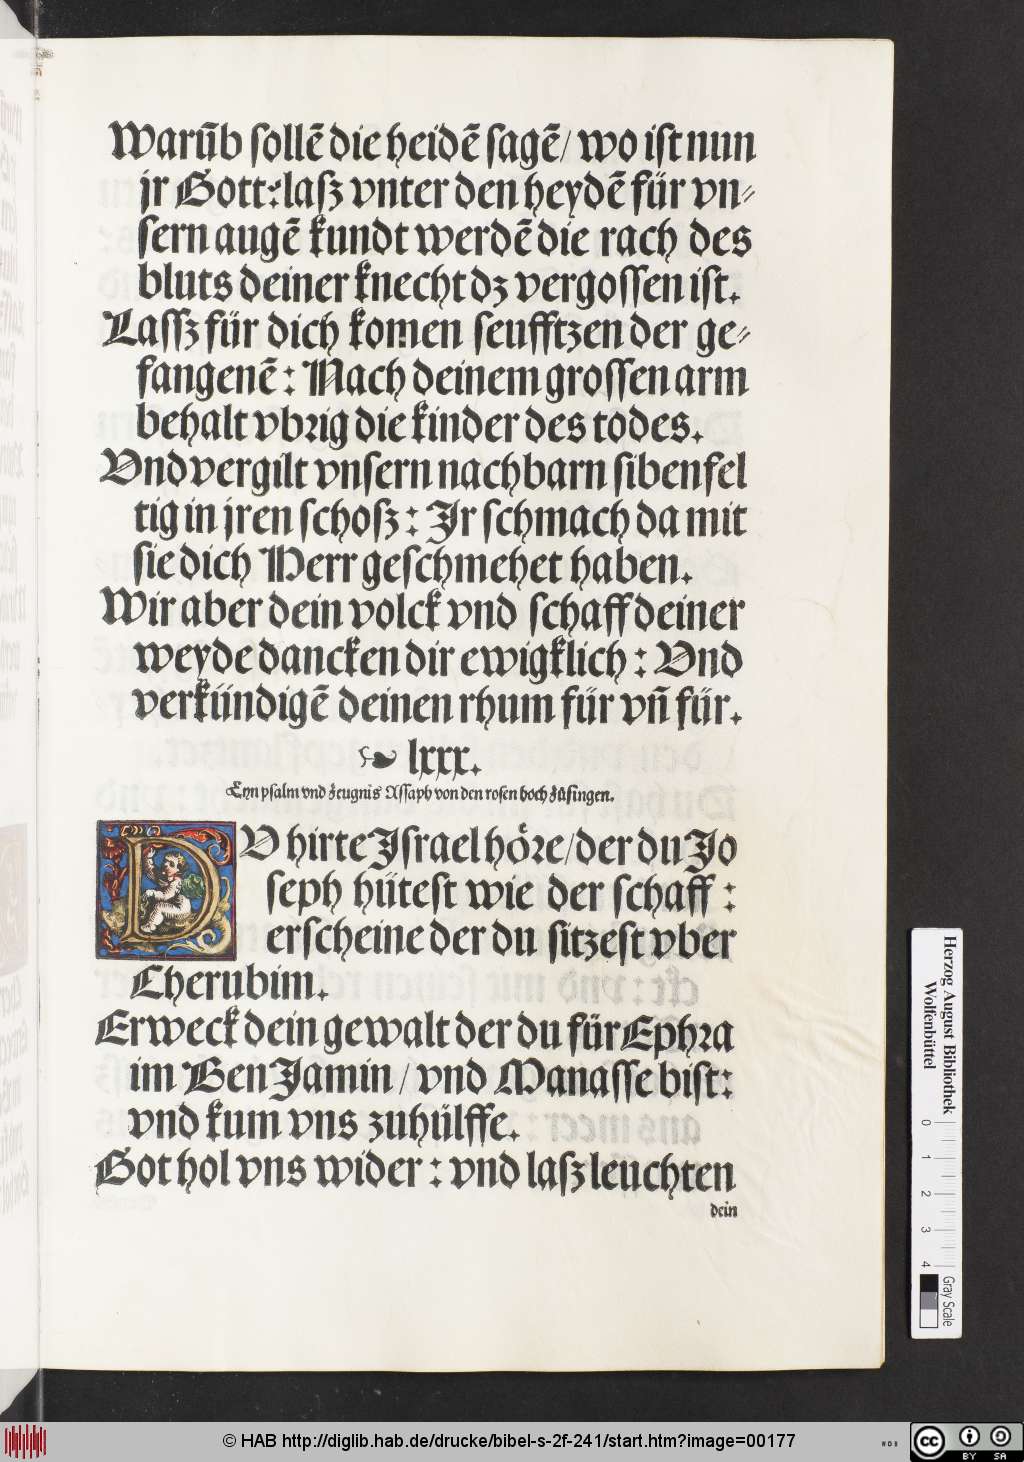 Warūb sollē die heidē sagē/ wo ist nun
jr Gott: lasz vnter den heydē für vn⸗
sern augē kundt werdē die rach des
bluts deiner knecht dz vergossen ist.
Lassz für dich komen seufftzen der ge⸗
fangenē: Nach deinem grossen arm
behalt vbrig die kinder des todes.
Vnd vergilt vnsern nachbarn sibenfel
tig in jren schosz: Ir schmach da mit
sie dich Herr geschmehet haben.
Wir aber dein volck vnd schaff deiner
weyde dancken dir ewigklich: Vnd
verkündigē deinen rhum für vn̄ für.
☙ lxxx.
Eyn psalm vnd zeugnis Assaph von den rosen hoch zůsingen.
DV hirte Israel hoͤre/ der du Jo
seph hütest wie der schaff:
erscheine der du sitzest vber
Cherubim.
Erweck dein gewalt der du für Ephra
im Ben Jamin/ vnd Manasse bist:
vnd kum vns zuhülffe.
Got hol vns wider: vnd lasz leuchten
dein
Herzog August Bibliothek
Wolfenbüttel
0 1 2 3 4
Gray Scale
© HAB http://diglib.hab.de/drucke/bibel-s-2f-241/start.htm?image=00177
WDB
cc BY SA